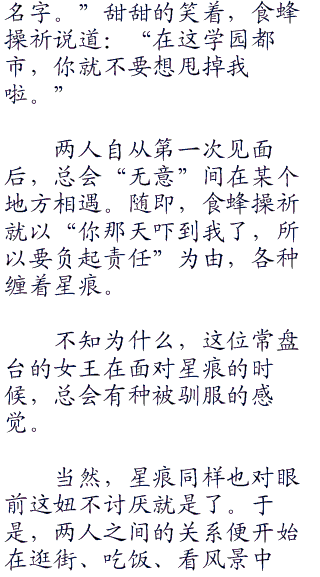 名字。”甜甜的笑着，食蜂
操祈说道：“在这学园都
市，你就不要想甩掉我
啦。”
两人自从第一次见面
后，总会“无意”间在某个
地方相遇。随即，食蜂操祈
就以“你那天吓到我了，所
以要负起责任”为由，各种
缠着星痕。
不知为什么，这位常盘
台的女王在面对星痕的时
候，总会有种被驯服的感
觉。
当然，星痕同样也对眼
前这妞不讨厌就是了。于
是，两人之间的关系便开始
在逛街、吃饭、看风景中